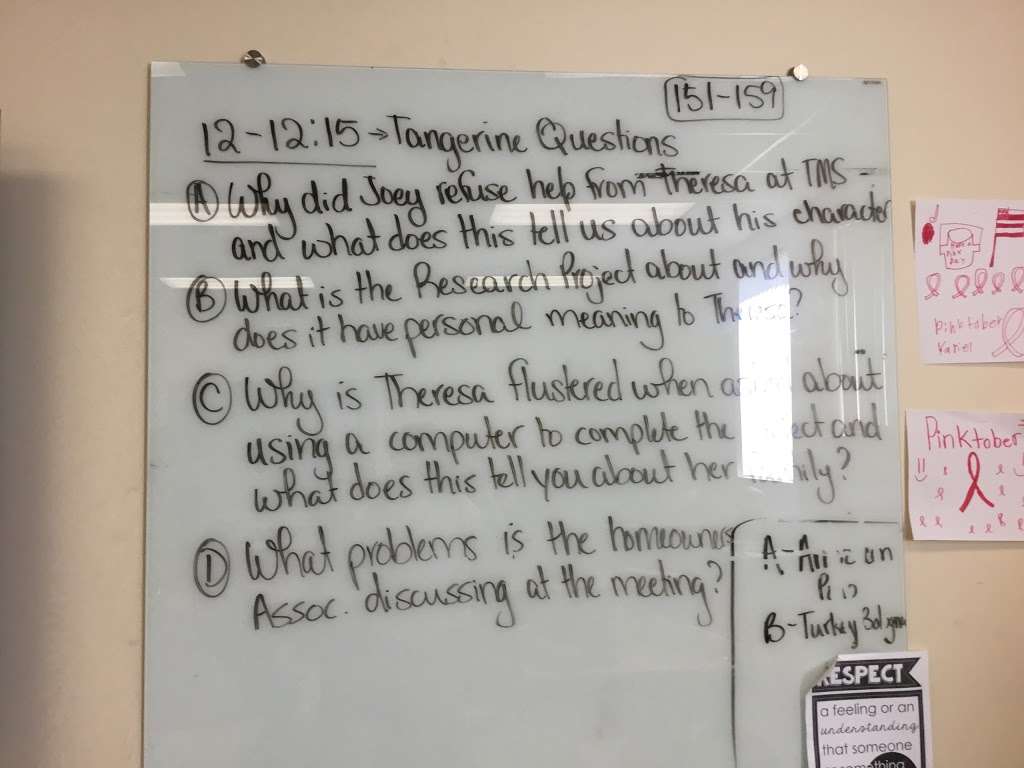 151-159
12-12:15→Tangerine Questions
Ⓐ Why did Joey refuse help from Theresa at TMS -
and what does this tell us about his character
Ⓑ What is the Research Project about and why
does it have personal meaning to
Ⓒ Why is Theresa flustered when about
using a computer to complete the and
what does this tell you about her
Ⓓ What problems is the homeowners
Assoc. discussing at the meeting?
A-
B-Turkey
Pinktober
Kariel
Pinktober
RESPECT
a feeling or an
understanding
that someone
something